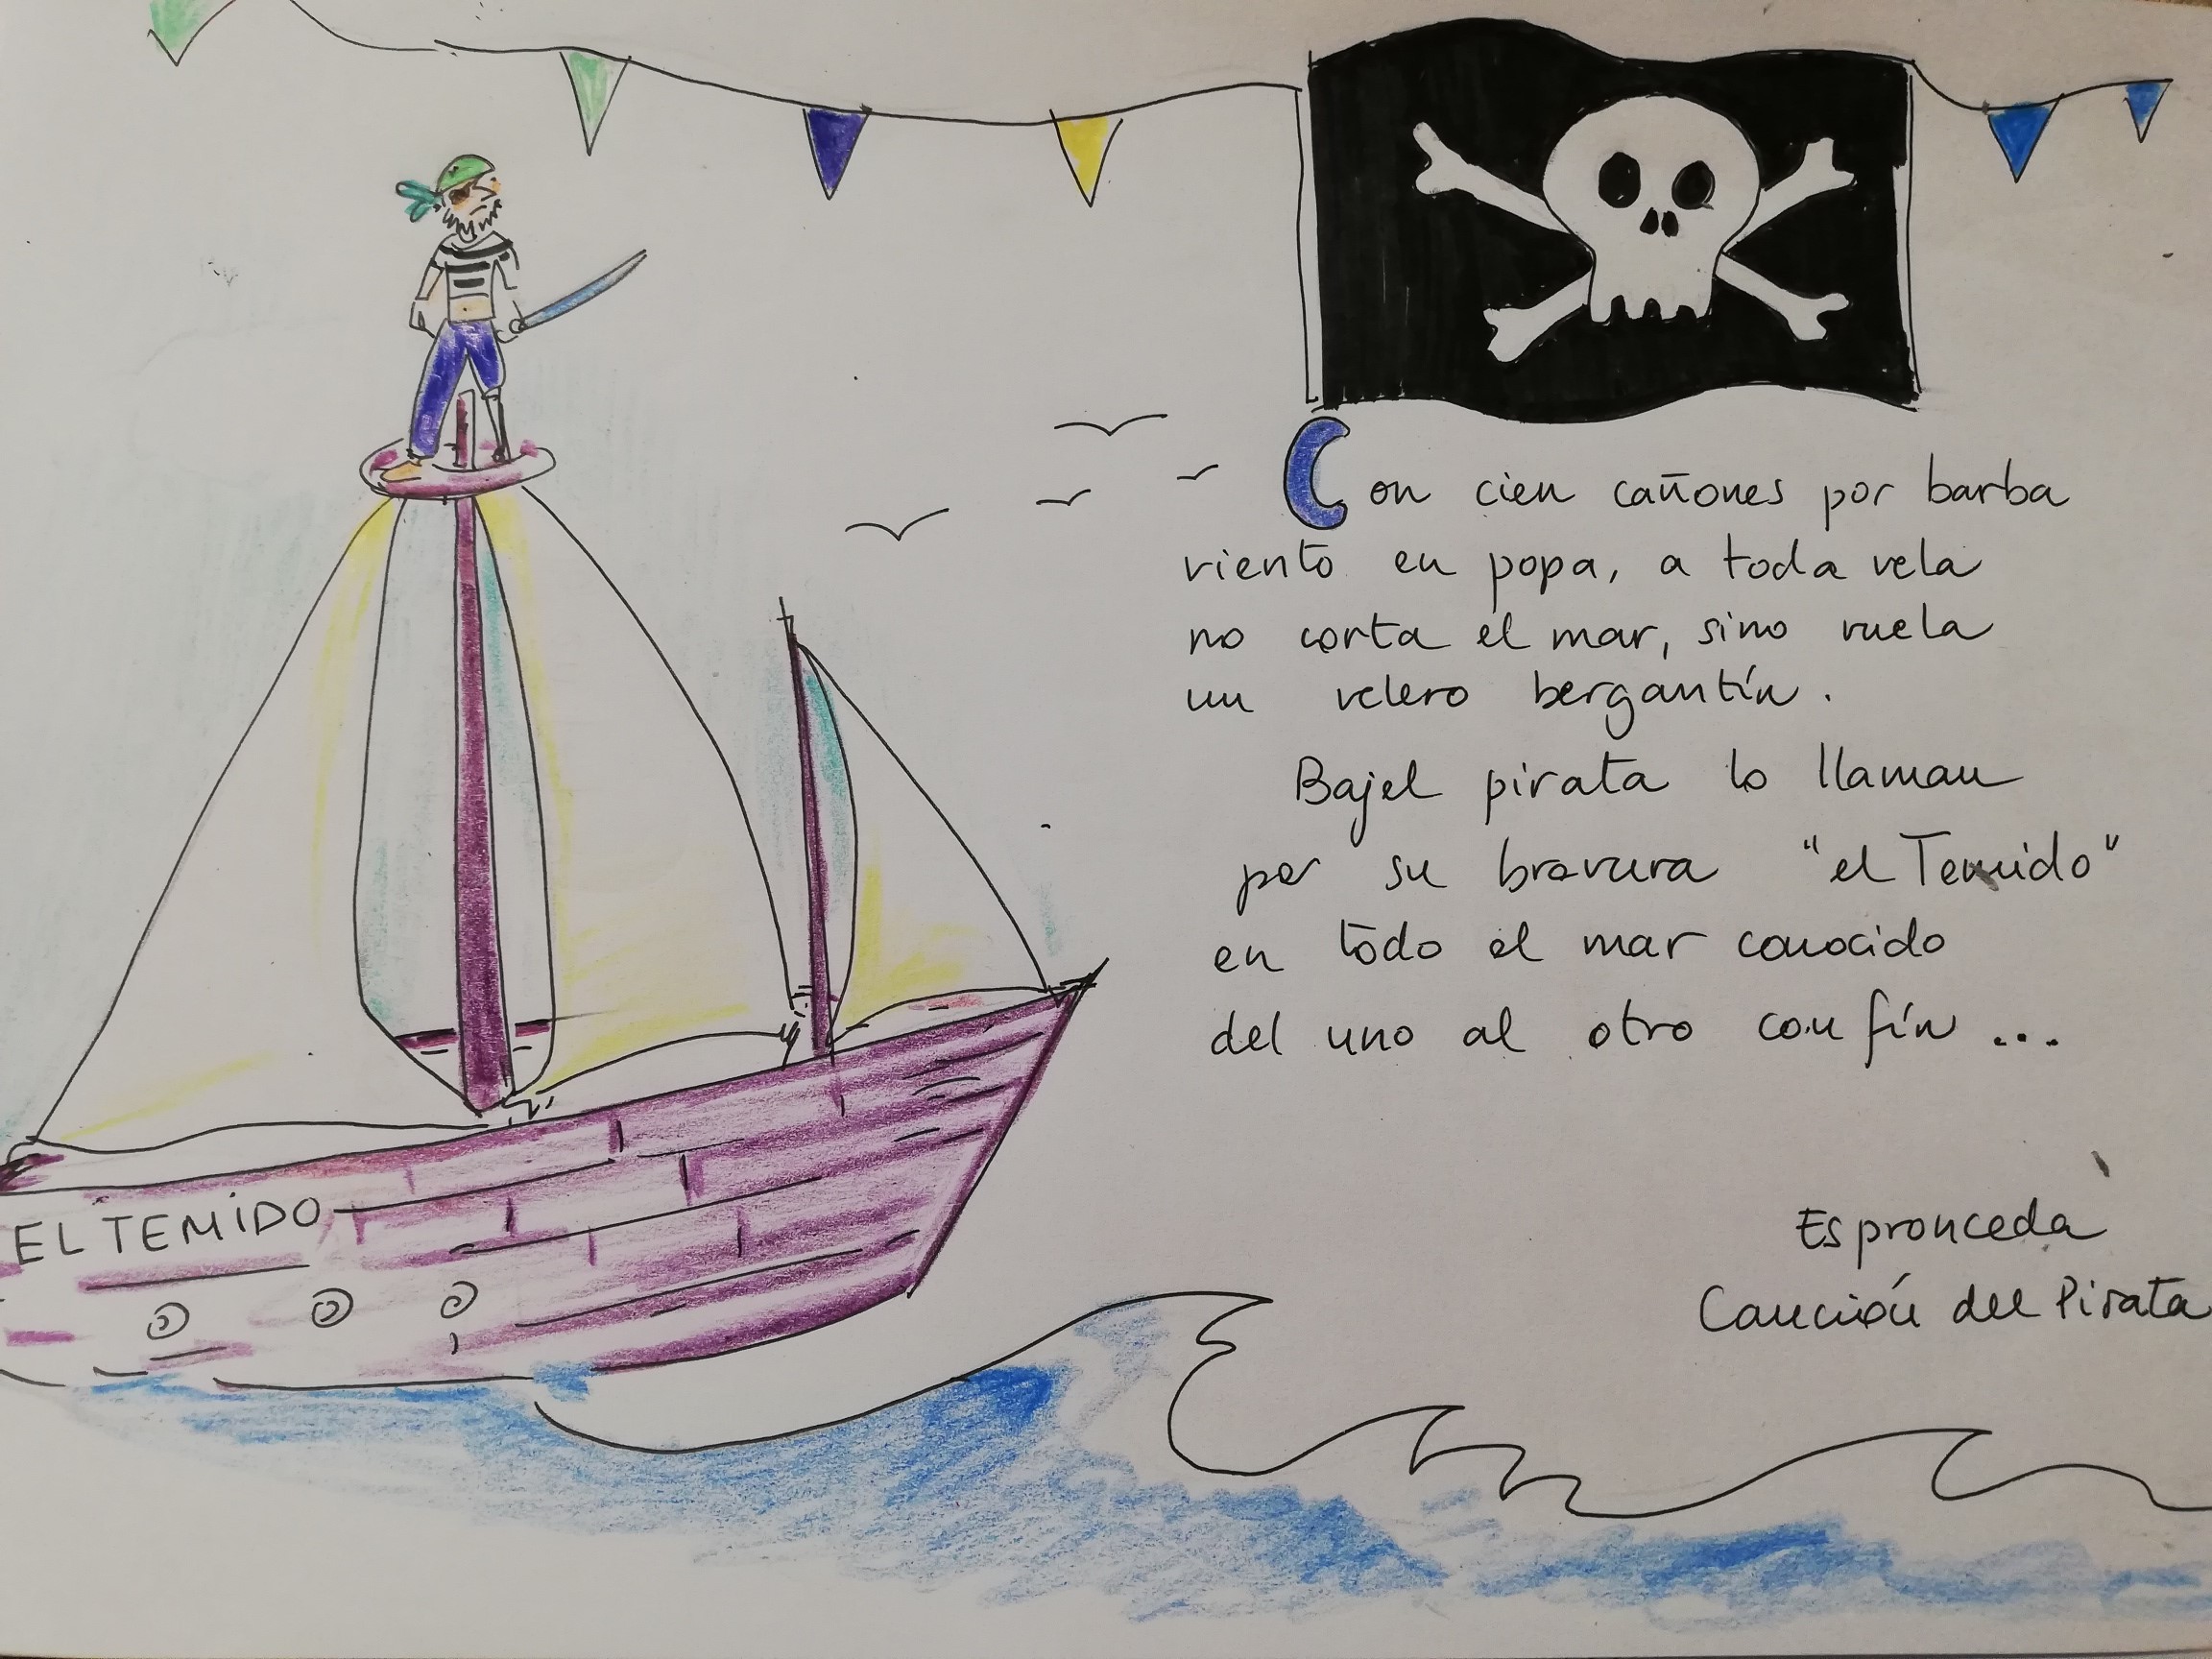 Con cien cañones por barba
viento en popa, a toda vela
no corta el mar, sino vuela
un velero bergantín.
Bajel pirata lo llaman
por su bravura "el Temido"
en todo el mar conocido
del uno al otro confín ...
EL TEMIDO
Espronceda
Canción del Pirata